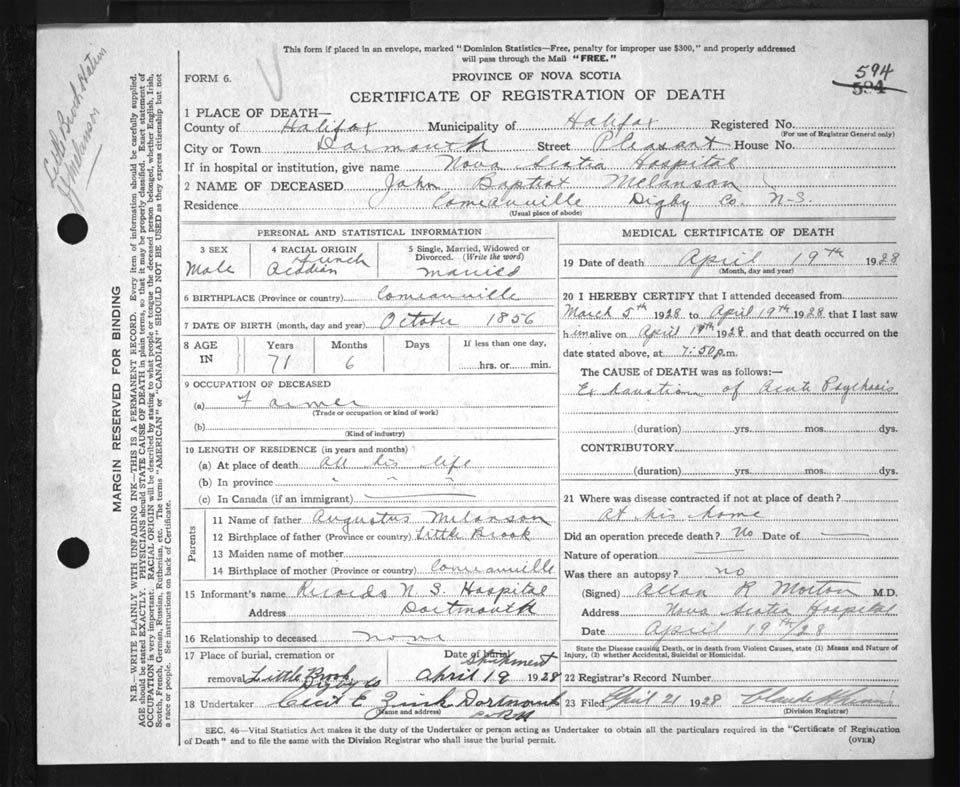 This form if placed in an envelope, marked "Dominion Statistics—Free, penalty for improper use $300," and properly addressed
will pass through the Mail "FREE."
FORM 6.
PROVINCE OF NOVA SCOTIA
594
594
CERTIFICATE OF REGISTRATION OF DEATH
1 PLACE OF DEATH—
County of Halifax Municipality of Halifax Registered No.
(For use of Registrar General only)
City or Town Darmouth Street Pleasant House No.
If in hospital or institution, give name Nova Scotia Hospital
2 NAME OF DECEASED John Baptist Melanson
Residence Comeauville Digby Co. N-S.
(Usual place of abode)
PERSONAL AND STATISTICAL INFORMATION
3 SEX
Male
4 RACIAL ORIGIN
French
Acadian
5 Single, Married, Widowed or
Divorced. (Write the word)
married
6 BIRTHPLACE (Province or country) Comeauville
7 DATE OF BIRTH (month, day and year) October 1856
8 AGE IN
Years Months Days If less than one day,
71 6 hrs. or min.
9 OCCUPATION OF DECEASED
(a) Farmer
(Trade or occupation or kind of work)
(b)
(Kind of industry)
10 LENGTH OF RESIDENCE (in years and months)
(a) At place of death all his life
(b) In province " " "
(c) In Canada (if an immigrant)
Parents
11 Name of father Augustus Melanson
12 Birthplace of father (Province or country) Little Brook
13 Maiden name of mother
14 Birthplace of mother (Province or country) Comeauville
15 Informant's name Records N. S. Hospital
Address Dartmouth
16 Relationship to deceased none
17 Place of burial, cremation or Date of burial
Shipment
removal Little Brook April 19 1928
Digby Co
18 Undertaker Cecil E. Zink Dartmouth
(Name and address)
MEDICAL CERTIFICATE OF DEATH
19 Date of death April 19th 1928
(Month, day and year)
20 I HEREBY CERTIFY that I attended deceased from
March 5th 1928 to April 19th 1928 that I last saw
him alive on April 19th 1928 and that death occurred on the
date stated above, at 7:50 p.m.
The CAUSE of DEATH was as follows:—
Exhaustion of Acute Psychosis
(duration) yrs. mos. dys.
CONTRIBUTORY.
(duration) yrs. mos. dys.
21 Where was disease contracted if not at place of death?
At his home
Did an operation precede death? No Date of
Nature of operation
Was there an autopsy? no
(Signed) Allan R Morton M.D.
Address Nova Scotia Hospital
Date April 19th/28
State the Disease causing Death, or in death from Violent Causes, state (1) Means and Nature of
Injury, (2) whether Accidental, Suicidal or Homicidal.
22 Registrar's Record Number
23 Filed April 21 1928
(Division Registrar)
SEC. 46—Vital Statistics Act makes it the duty of the Undertaker or person acting as Undertaker to obtain all the particulars required in the "Certificate of Registration
of Death" and to file the same with the Division Registrar who shall issue the burial permit.
(OVER)
MARGIN RESERVED FOR BINDING
N.B.—WRITE PLAINLY WITH UNFADING INK—THIS IS A PERMANENT RECORD. Every item of information should be carefully supplied.
AGE should be stated EXACTLY. PHYSICIANS should STATE CAUSE OF DEATH in plain terms, so that it may be properly classified. Exact statement of
OCCUPATION is very important. RACIAL ORIGIN will be described by stating to what people or tongue the deceased person belonged, whether English, Irish,
Scotch, French, German, Russian, Ruthenian, etc. The terms "AMERICAN" or "CANADIAN" SHOULD NOT BE USED as they express citizenship but not
a race or people. See instructions on back of Certificate.
Little Brook Station